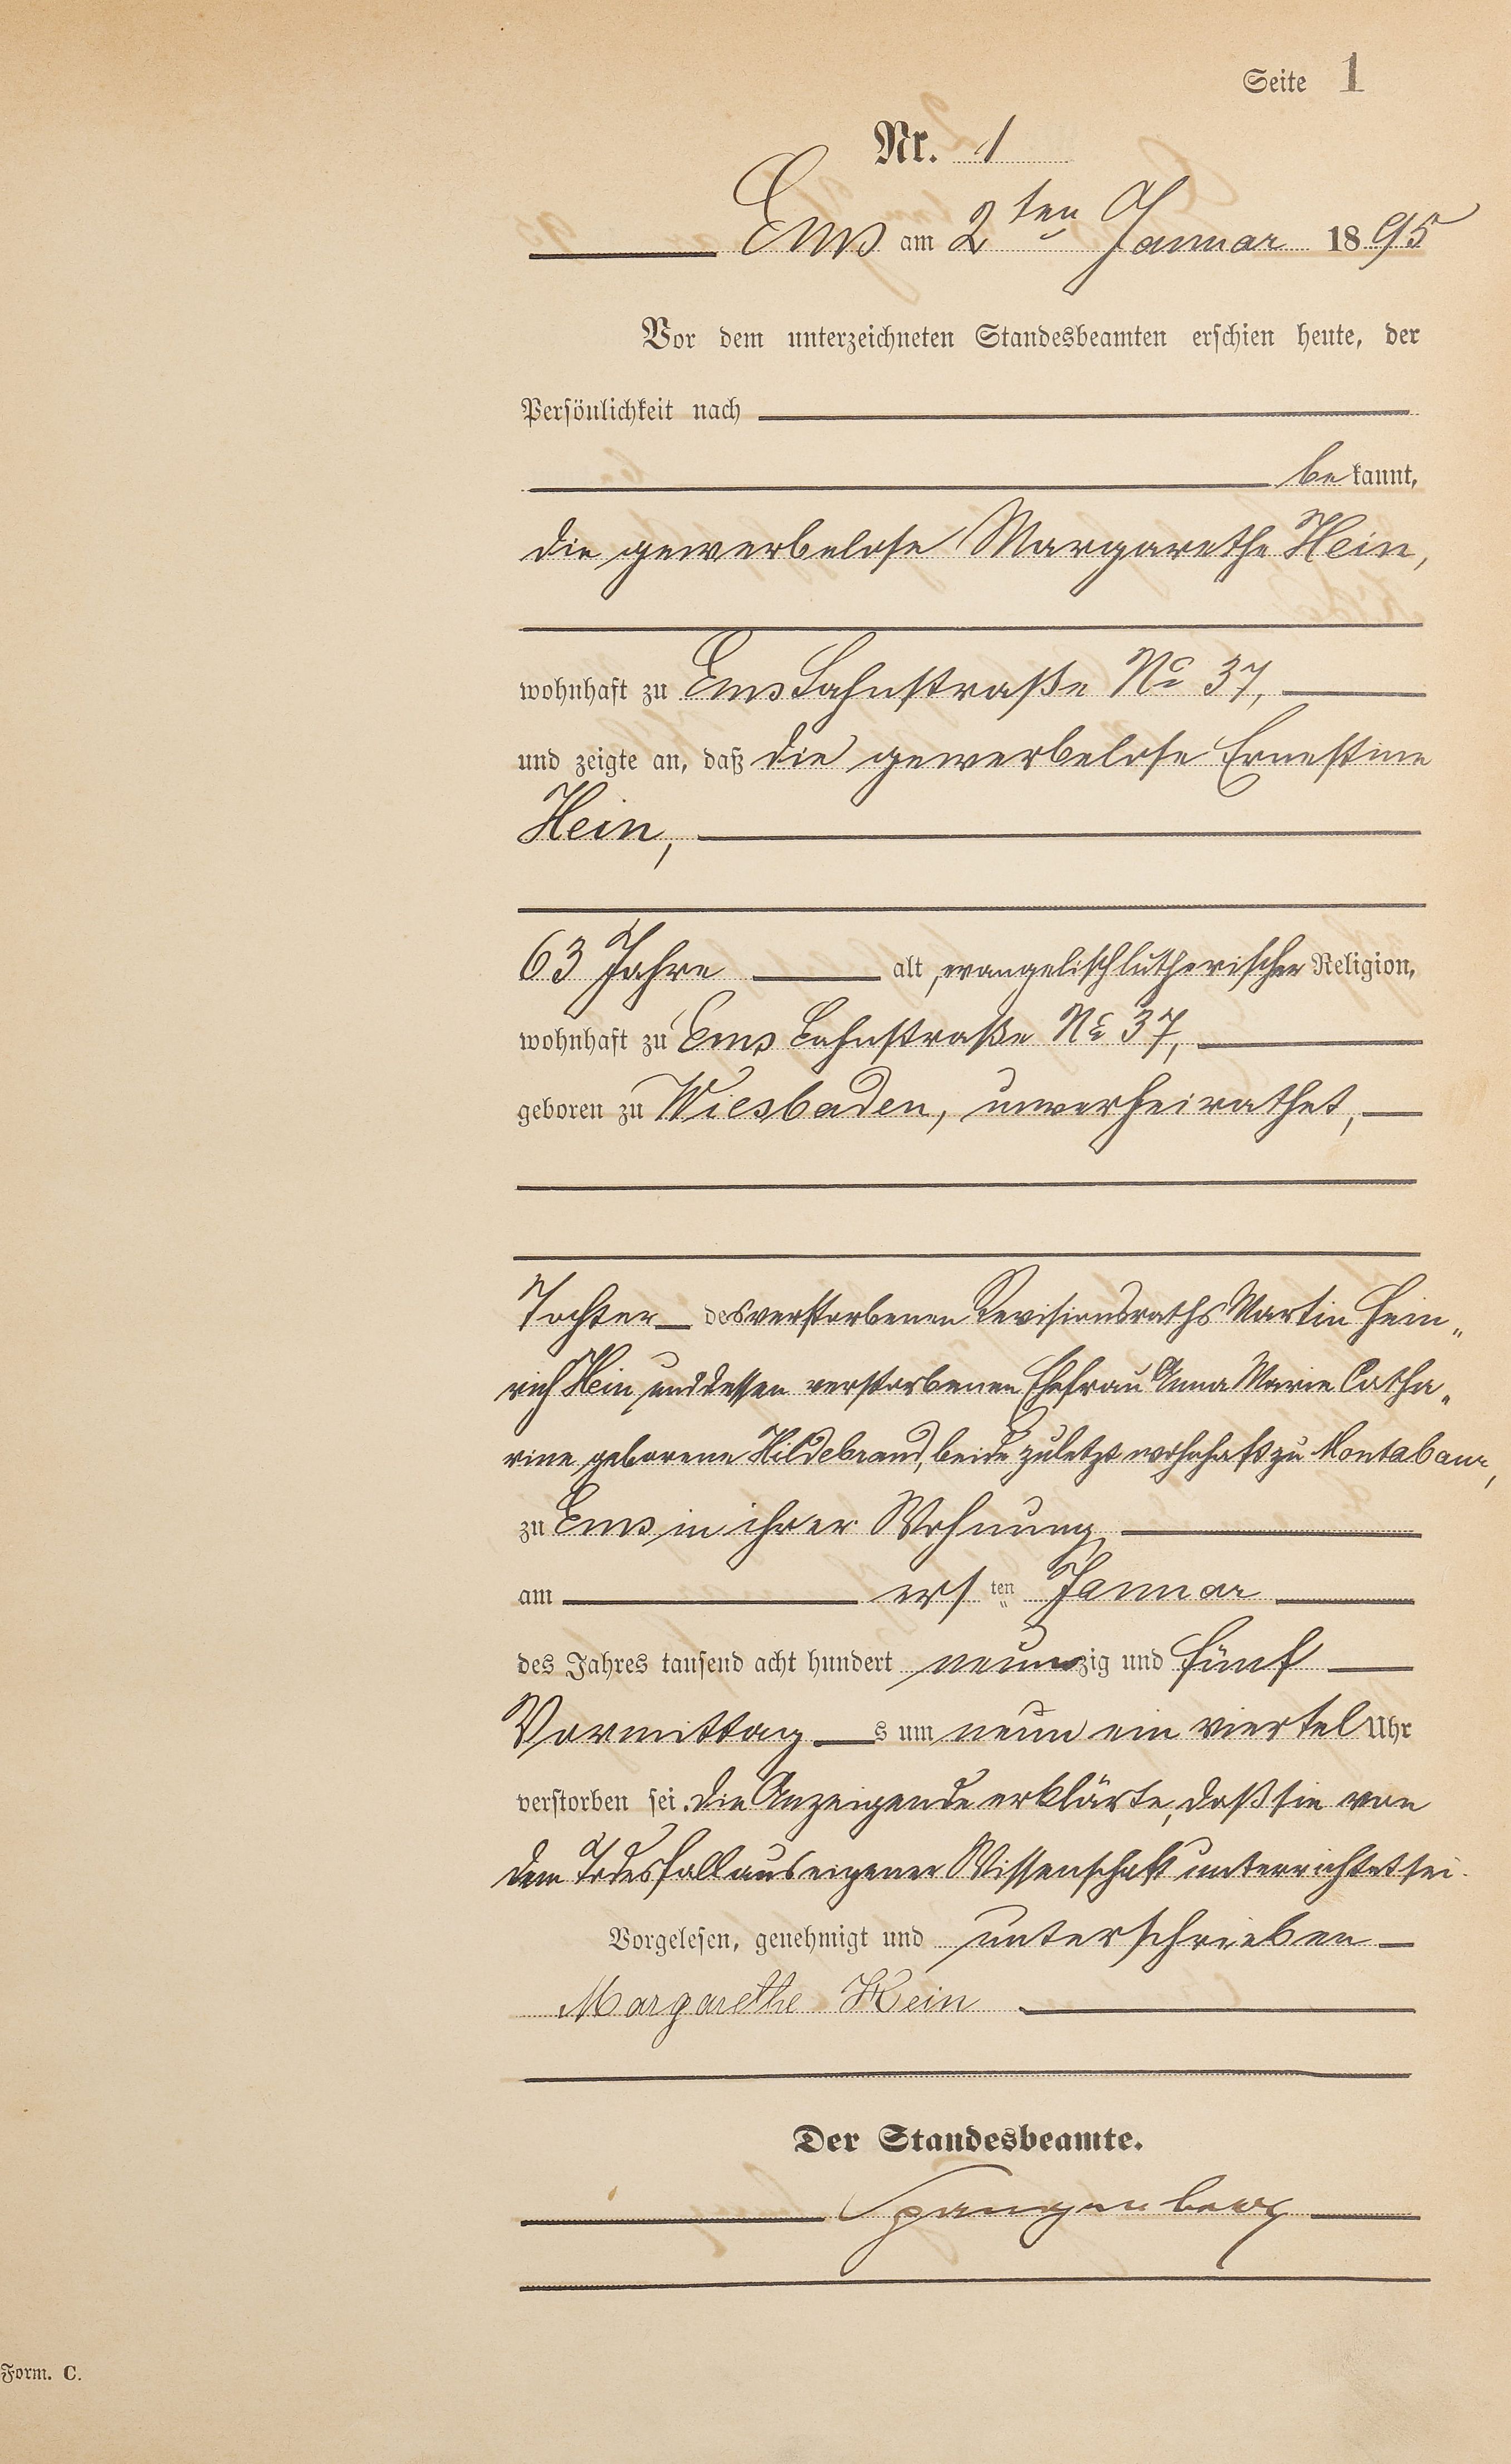 Seite 1
Nr. 1
Ems am 2ten Januar 1895
Vor dem unterzeichneten Standesbeamten erschien heute, der
Persönlichkeit nach
bekannt,
die gewerbelose Margarethe Hein,
wohnhaft zu Ems Lahnstraße No 37,
und zeigte an, daß die gewerbelose Ernestine
Hein,
63 Jahre alt, evangelisch lutherischer Religion,
wohnhaft zu Ems Lahnstraße No 37,
geboren zu Wiesbaden, unverheirathet,
Tochter des verstorbenen Revisionsraths Martin Hein„
rich Hein und dessen verstorbenen Ehefrau Anna Marie Catha„
rine geborene Hildebrand, beide zuletzt wohnhaft zu Montabaur,
zu Ems in ihrer Wohnung
am ersten Januar
des Jahres tausend acht hundert neunzig und fünf
Vormittags um neun ein viertel Uhr
verstorben sei. Die Anzeigende erklärte, daß sie von
dem Todesfall aus eigener Wissenschaft unterrichtet sei.
Vorgelesen, genehmigt und unterschrieben
Margarethe Hein
Der Standesbeamte.
Spangenberg
Form. C.